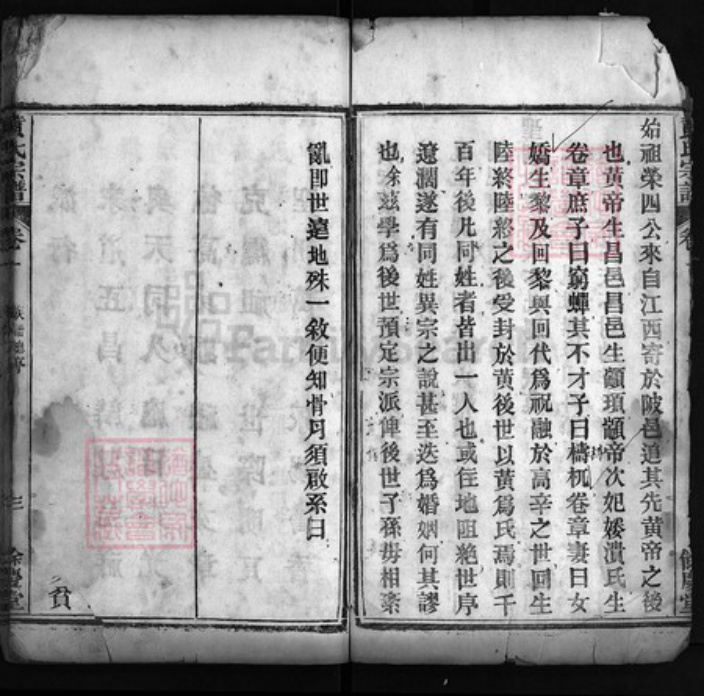 始祖榮四公來自江西寄於陂邑道其先黄帝之後
也黄帝生昌邑昌邑生顓頊顓帝次妃婑潰氏生
卷章庶子曰窮蟬其不才子曰檮杌卷章妻曰女
嬌生黎及回黎與回代爲祝融於高辛之世回生
陸終陸終之後受封於黄後世以黄爲氏焉則千
百年後凡同姓者皆出一人也或徃地阻絶世序
遼濶遂有同姓異宗之說甚至迭爲婚姻何其謬
也徐兹學爲後世預定宗派俾後世子孫毋相紊
亂即世遠地殊一敘便知骨月須啟系曰
黄氏宗譜
卷一
三
餘慶堂
貧
FamilySearch